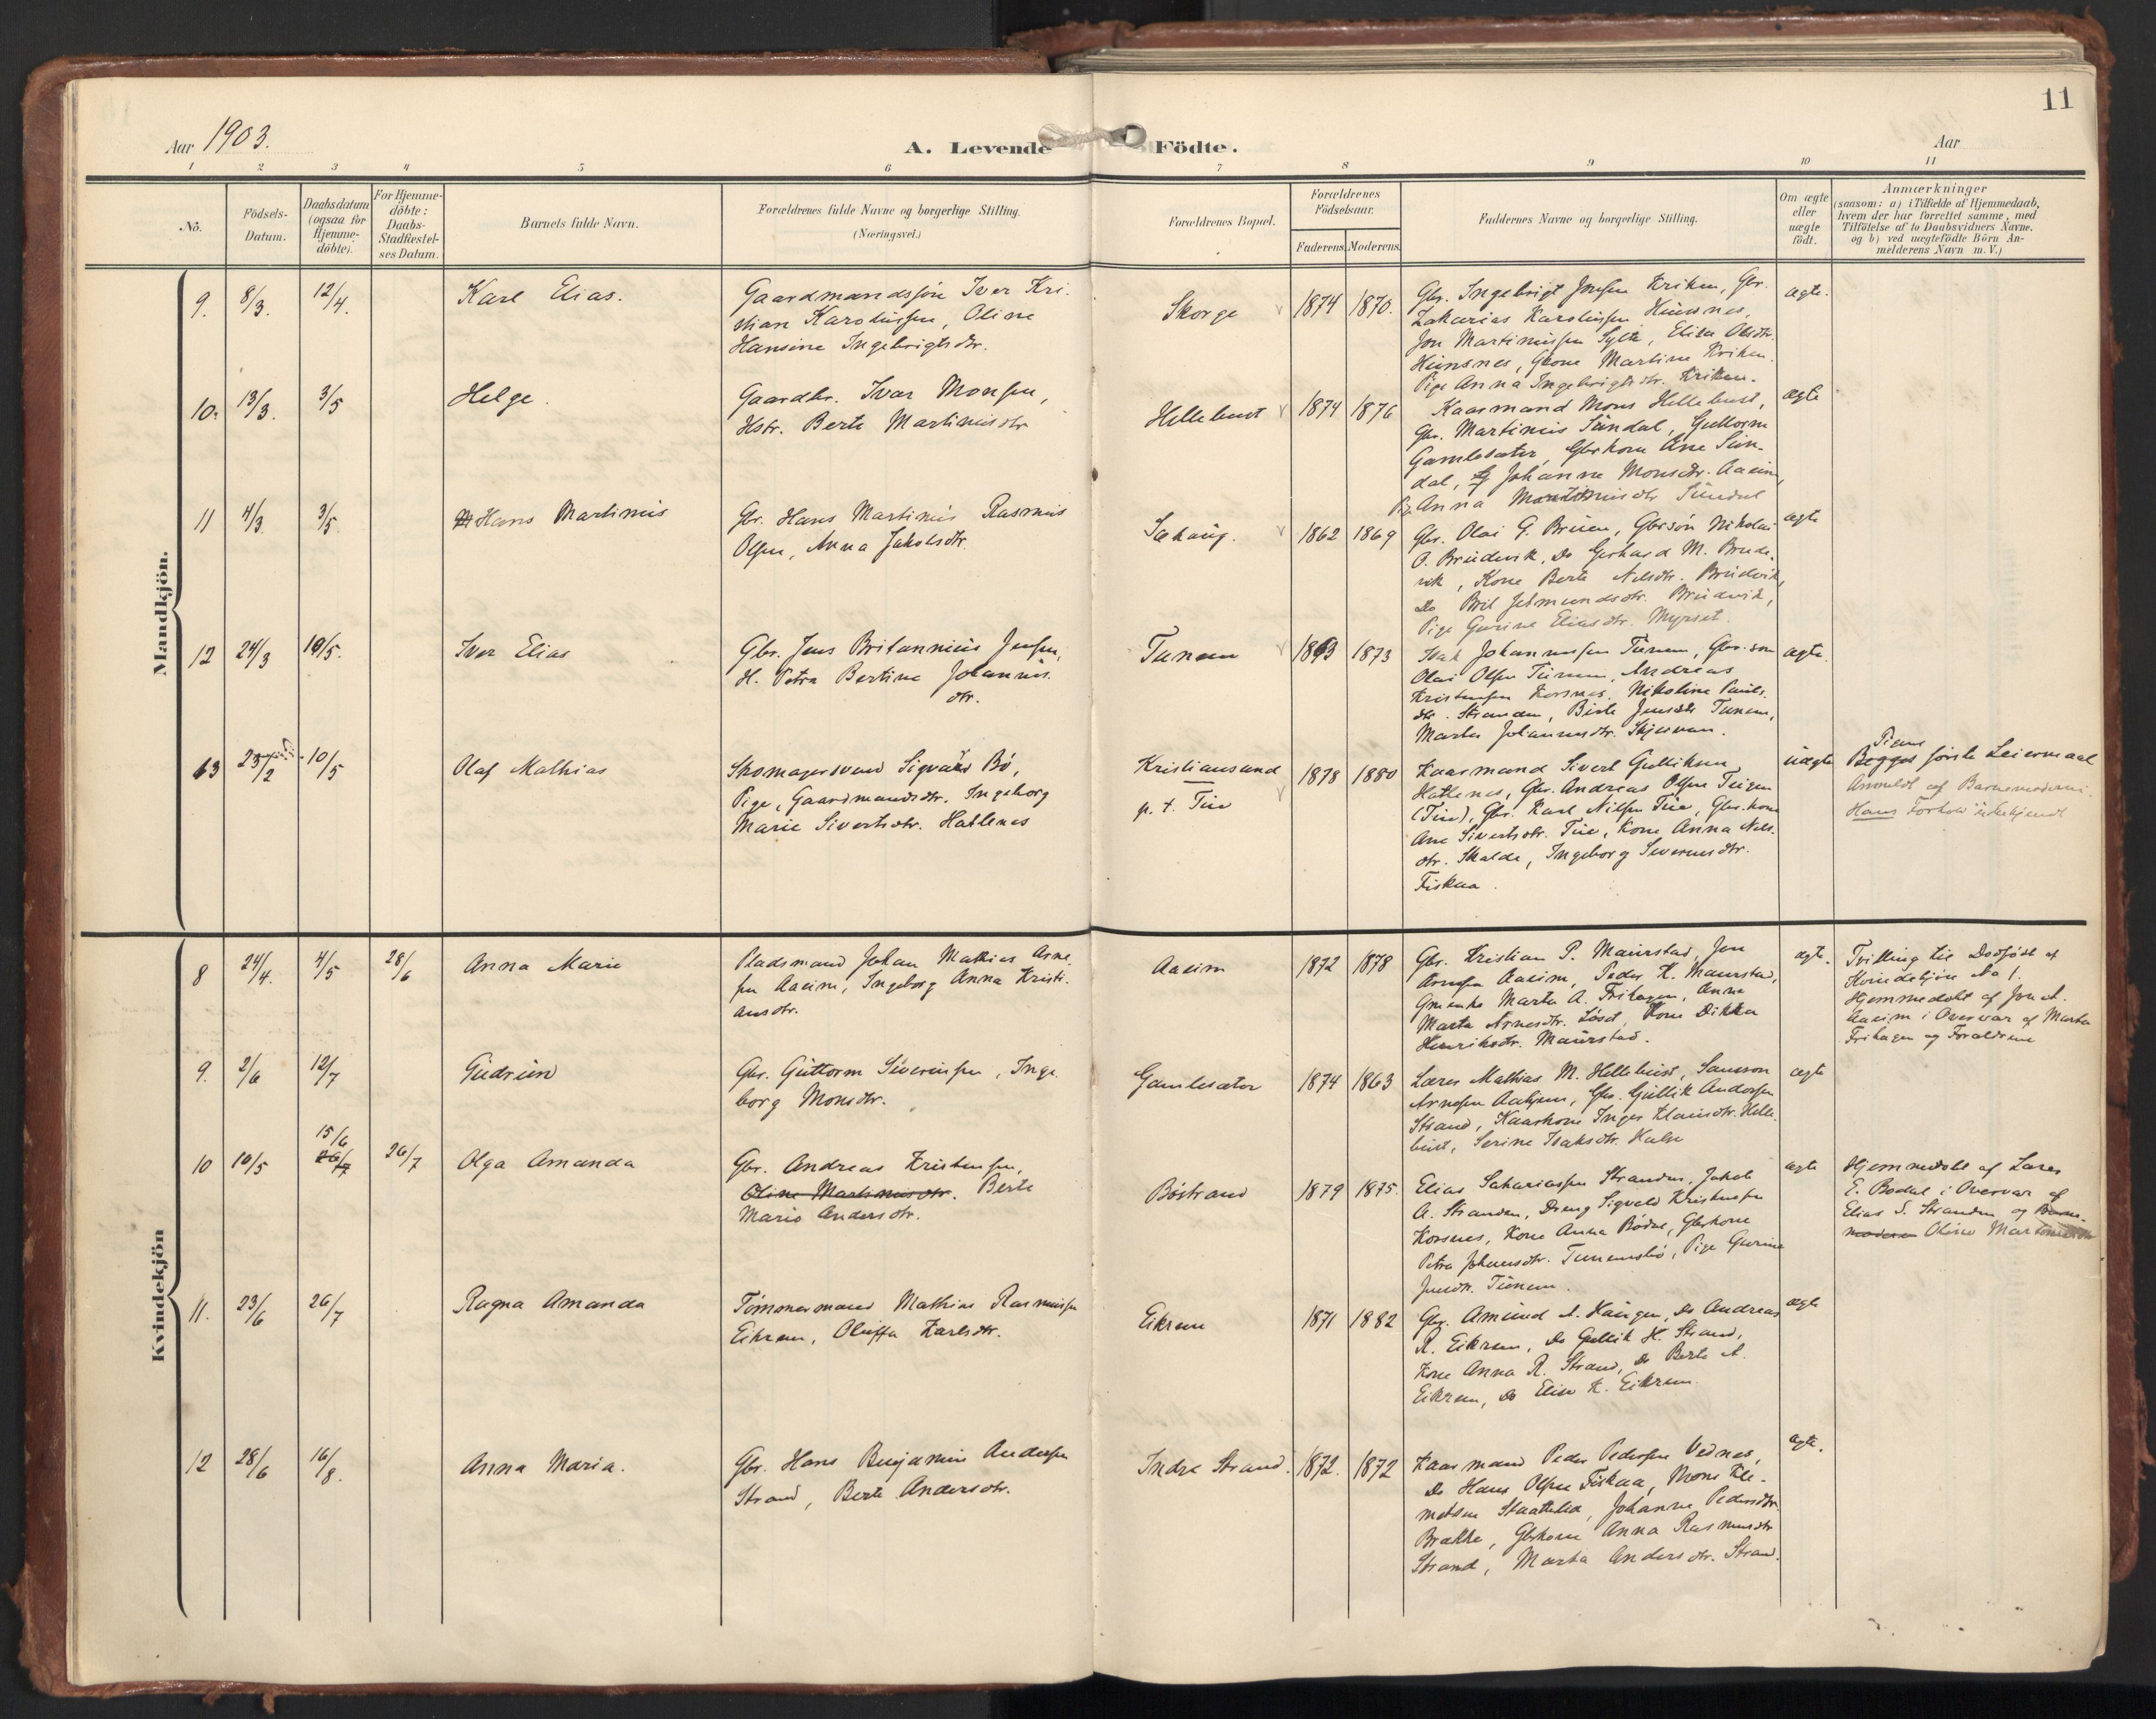 11
Aar 1903.
A. Levende Födte.
Aar
1 2 3 4 5 6 7 8 9 10 11
Nö.
Födsels-
Datum.
Daabsdatum
(ogsaa for
Hjemme-
döbte).
For Hjemme-
döbte:
Daabs-
Stadfæstel-
ses Datum.
Barnets fulde Navn.
Forældrenes fulde Navne og borgerlige Stilling.
(Næringsvei.)
Forældrenes Bopæl.
Forældrenes
Födselsaar.
Faderens. Moderens.
Faddernes Navne og borgerlige Stilling.
Om ægte
eller
uægte
født.
Anmærkninger
(saasom: a) i Tilfælde af Hjemmedaab,
hvem der har forrettet samme, med
Tilföielse af to Daabsvidners Navne.
og b) ved uægtefödte Börn An-
melderens Navn m. V.)
Mandkjön.
9. 8/3. 12/4. Karl Elias.
Gaardmandssön Iver Kri-
stian Karolussen, Oline
Hansine Ingebrigtsdtr.
Skorge 1874 1870.
Gbr. Ingebrigt Jonsen Kriken, Gbr.
Zakarias Karolussen Hunsnes,
Jon Martinussen Sylte, Elisa Olsdtr.
Hunsnes, Gkone Martine Kriken.
Pige Anna Ingebrigtsdtr. Kriken.
ægte.
10. 13/3. 3/5 Helge.
Gaardbr. Ivar Monsen,
Hstr. Berte Martinusdtr
Hellebust 1874 1876
Kaarmand Mons Hellebust,
Gbr. Martinus Sundal, Guttorm
Gamlesæter, Gbrkone Ane Sun-
dal, Johanne Monsdtr. Aaeim,
Pig. Anna Martinusdtr Sundal
ægte
11 4/3 3/5. Hans Martinus
Gbr. Hans Martinus Rasmus
Olsen, Anna Jakobsdtr.
Sæhaug. 1862 1869
Gbr. Olai G. Bruen, Gbrsön Nikolai
O. Brudevik, Do Gerhard M. Brude-
vik, Kone Berte Nilsdtr. Brudevik,
Do Bril Jetmundsdtr. Brudevik,
Pige Gurine Eliasdtr. Myrset.
ægte
12 24/3 10/5. Iver Elias
Gbr. Jens Britannius Jensen,
H. Petra Bertine Johannes-
dtr.
Tunem 1873
Isak Johannessen Tunem, Gbr. sön
Olai Olsen Tunem, Andreas
Kristensen Korsnes, Nikoline Pauls-
dtr. Stranden, Berte Jensdtr Tunem,
Marta Johannesdtr. Skjervan.
ægte.
13 23/2 10/5 Olaf Mathias
Skomagersvend Sigvard Bö,
Pige, Gaardmandsdtr. Ingeborg
Marie Sivertsdtr. Hatlenes
Kristiansund
p. t. Tue
1878 1880
Kaarmand Sivert Gulliksen
Hatlenes, Gbr. Andreas Olsen Teigen
(Tue), Gbr. Karl Nilsen Tue, Gbr. kone
Ane Sivertsdtr. Tue, Kone Anna Nils-
dtr. Skalde, Ingeborg Severinsdtr.
Fiskaa.
uægte
Pigens
Begges første Leiermaal
Anmeldt af Barnemoderen.
Hans Forhold
Kvindekjön
8 24/4. 4/5 28/6 Anna Marie
Pladsmand Johan Mathias Arne-
sen Aaeim, Ingeborg Anna Kristi-
ansdtr.
Aaeim 1872 1878
Gbr. Kristian P. Maurstad, Jon
Arnesen Aaeim, Peder K. Maurstad,
Gmenke Marta A. Frihagen, Anna
Marta Arnesdtr. Löset, Kone Dikka
Henriksdtr. Maurstad.
ægte.
Tvilling til Dödfödt af
Kvindekjön No 1.
Hjemmedöbt af Jon A.
Aaeim i Overvær af Marta
Frihagen og Forældrene
9. 2/6 12/7 Gudrun
Gbr. Guttorm Severinsen, Inge-
borg Monsdtr.
Gamlesæter 1874 1863
Lærer Mathias M. Hellebust, Samson
Arnesen Aahjem, Gbr. Gullik Andersen
Strand, Kaarkone Inger Klausdtr. Helle-
bust, Serine Isaksdtr. Halse
ægte
10 10/5 15/6 26/7 26/7 Olga Amanda
Gbr. Andreas Kristensen,
Oline Martinusdtr. Berte
Marie Andersdtr.
Böstrand 1879 1875.
Elias Sakariassen Stranden, Jakob
A. Stranden, Dreng Sigvald Kristensen
Korsnes, Kone Anna Bödal, Gbrkone
Petra Johansdtr. Tunemsbö, Pige Gurine
Jensdtr. Tunem.
ægte
Hjemmedöbt af Lærer
E. Bodal i Overvær af
Elias S. Stranden og Barne-
moderen Oline Martinusdtr
11. 23/6 26/7 Ragna Amanda
Tömmermand Mathias Rasmussen
Eikrem, Oluffa Karlsdtr.
Eikrem 1871 1882
Gbr. Amund A. Haugen, Do Andreas
R. Eikrem, Do Gullik H. Strand,
Kone Anna R. Strand, Do Berte A.
Eikrem, Do Elise K. Eikrem.
ægte
12 28/6 16/8. Anna Maria.
Gbr. Hans Benjamin Andersen
Strand, Berte Andersdtr.
Indre Strand. 1872. 1872
Kaarmand Peder Pedersen Vednes,
Do Hans Olsen Fiskaa, Mons Kle-
metsen Staatteld, Johanne Pedersdtr.
Brække, Gbrkone Anna Rasmusdtr
Strand, Marta Andersdtr. Strand.
ægte.